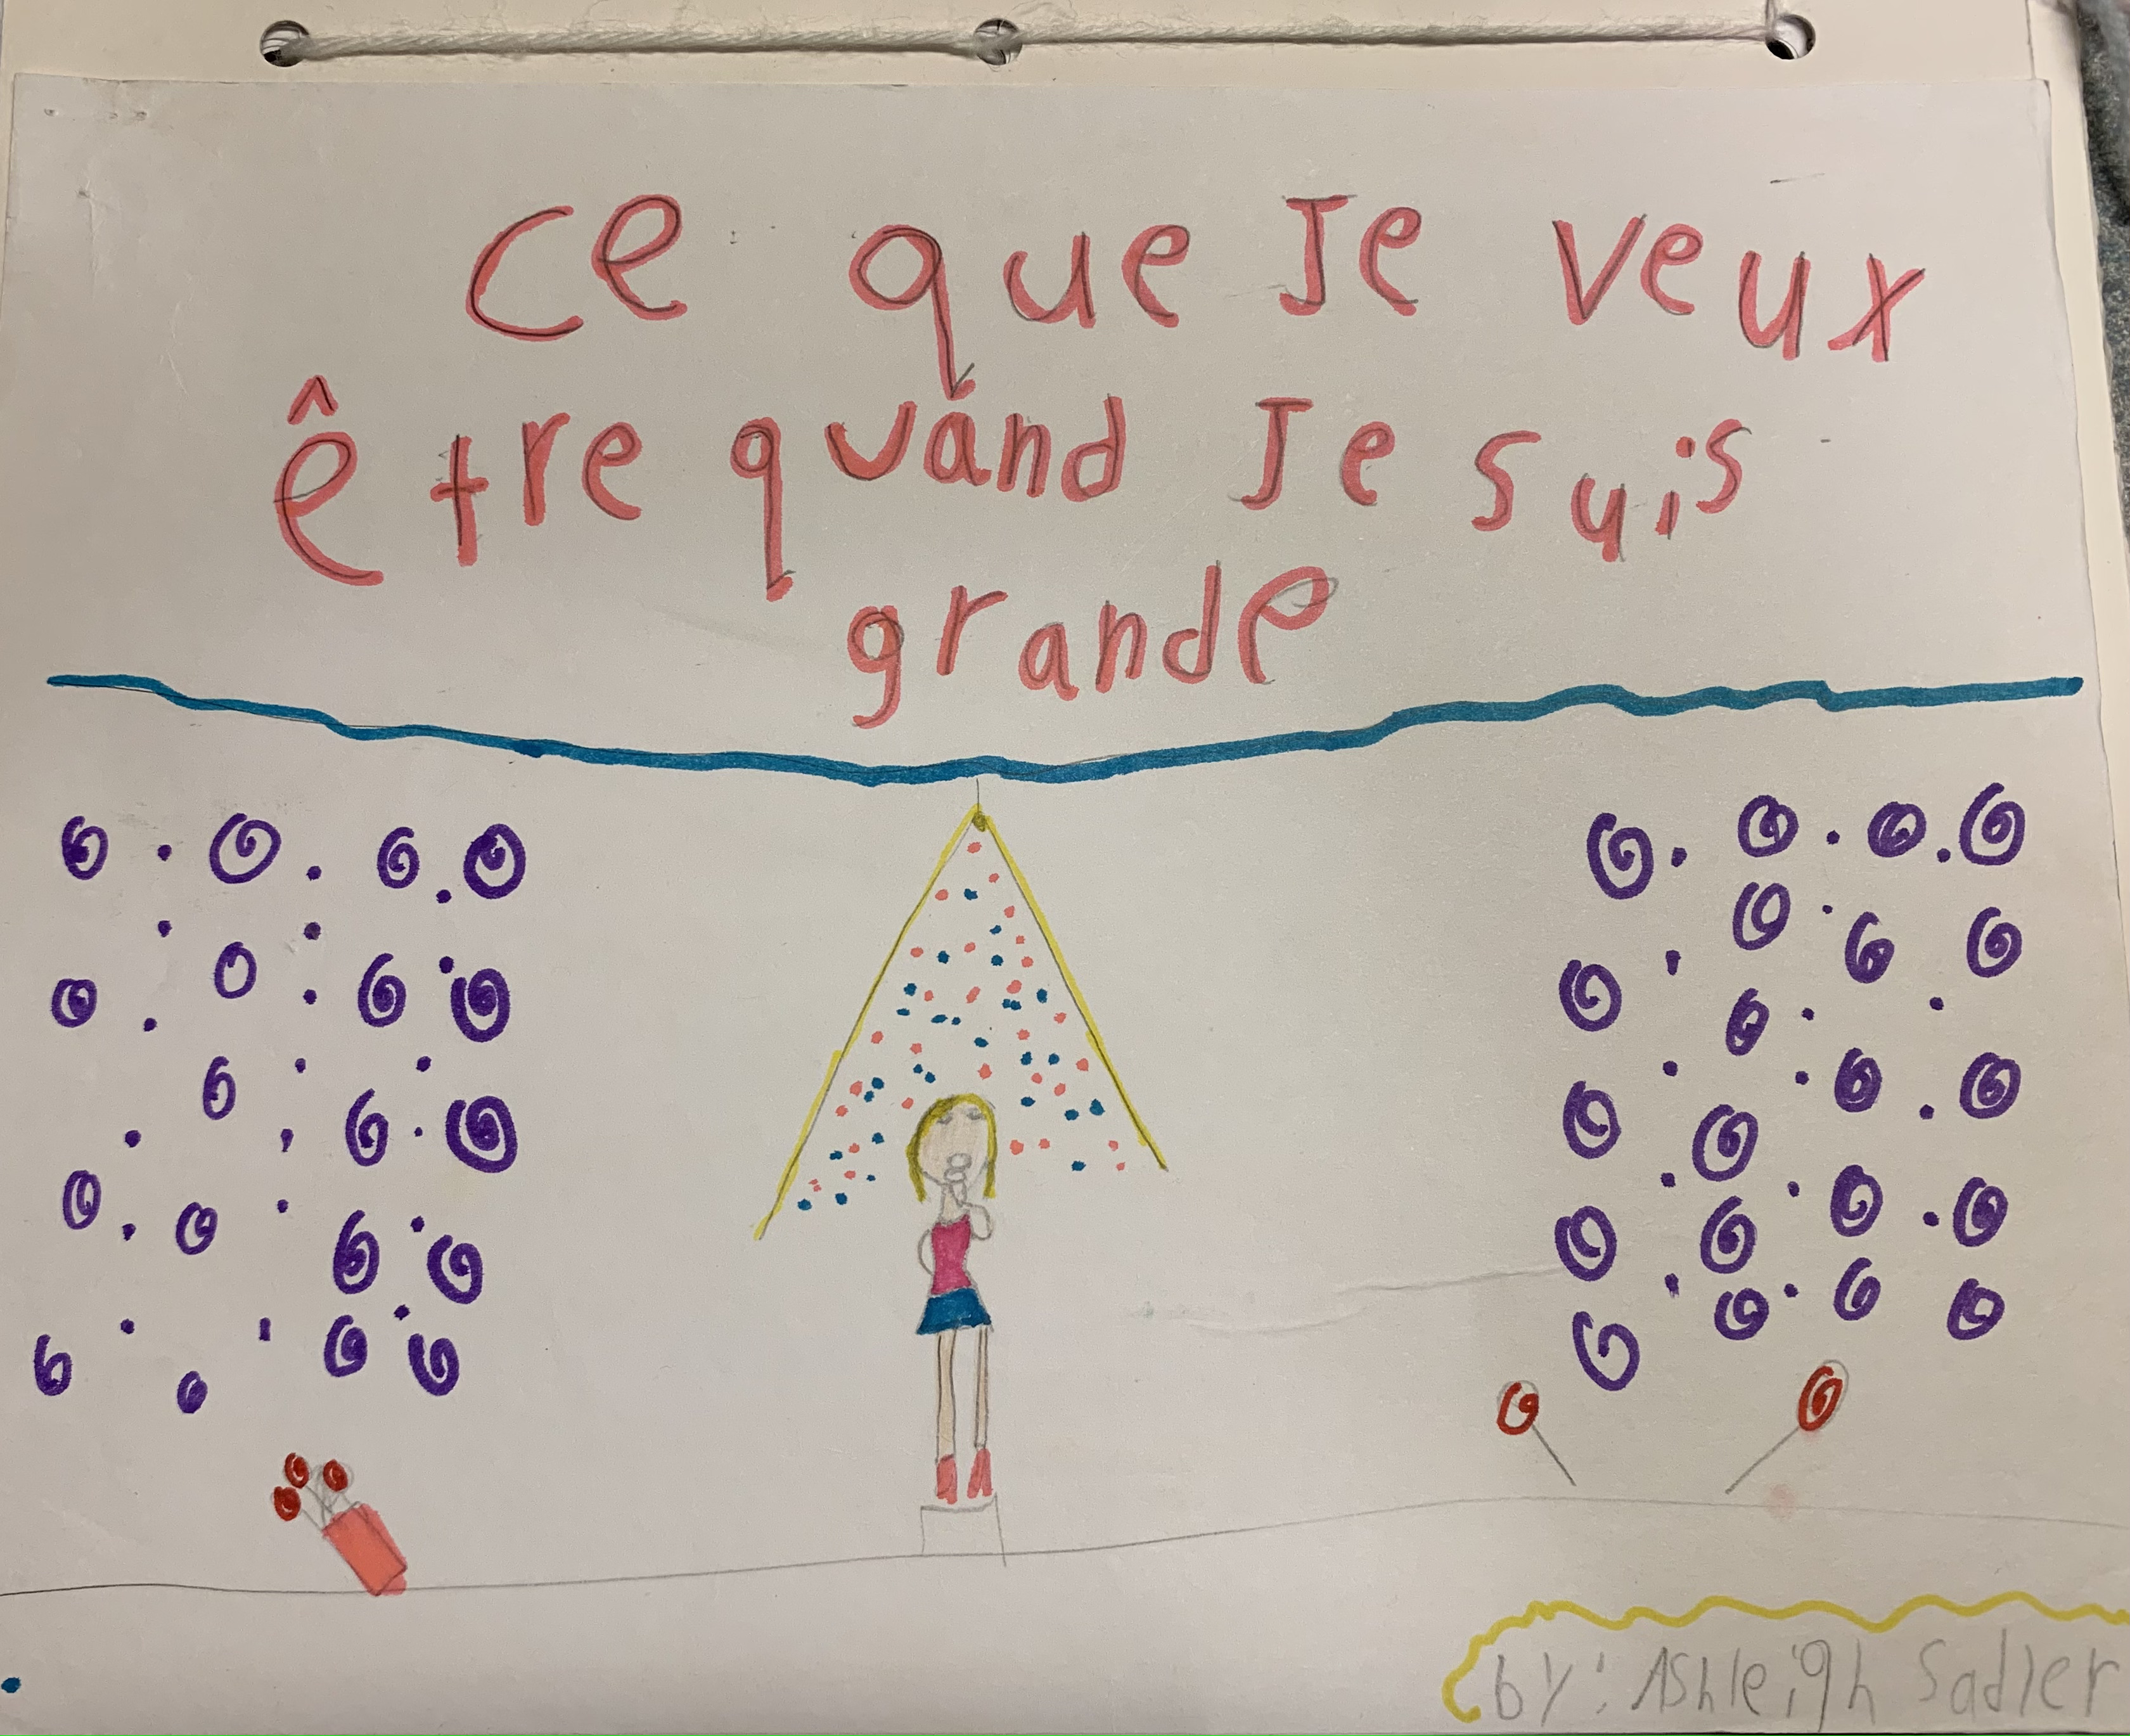 ce que Je veux
être quand Je suis
grande
by: Ashleigh Sadler